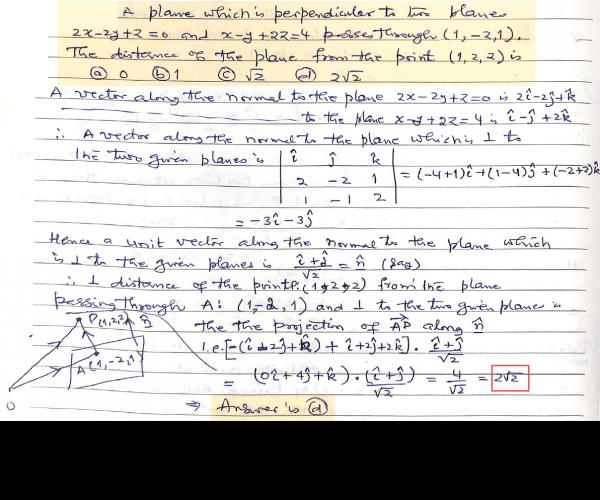 A plane which is perpendicular to two planes
2x-2y+z=0 and x-y+2z=4 passes through (1,-2,1).
The distance of the plane from the point (1,2,2) is
(a) 0 (b) 1 (c) √2 (d) 2√2
A vector along the normal to the plane 2x-2y+z=0 is 2î-2ĵ+k̂
to the plane x-y+2z=4 is î-ĵ+2k̂
∴ A vector along the normal to the plane which is ⊥ to
the two given planes is | î ĵ k̂ |
| 2 -2 1 | = (-4+1)î+(1-4)ĵ+(-2+2)k̂
| 1 -1 2 |
= -3î-3ĵ
Hence a unit vector along the normal to the plane which
is ⊥ to the given planes is (î+ĵ)/√2 = n̂ (say)
∴ ⊥ distance of the point P:(1,2,2) from the plane
passing through A:(1,-2,1) and ⊥ to the two given planes is
the the projection of AP along n̂
i.e. [-(î-2ĵ+k̂) + î+2ĵ+2k̂] . (î+ĵ)/√2
= (0î+4ĵ+k̂) . (î+ĵ)/√2 = 4/√2 = 2√2
⇒ Answer is (d)
P(1,2,2) n̂
A(1,-2,1)
O